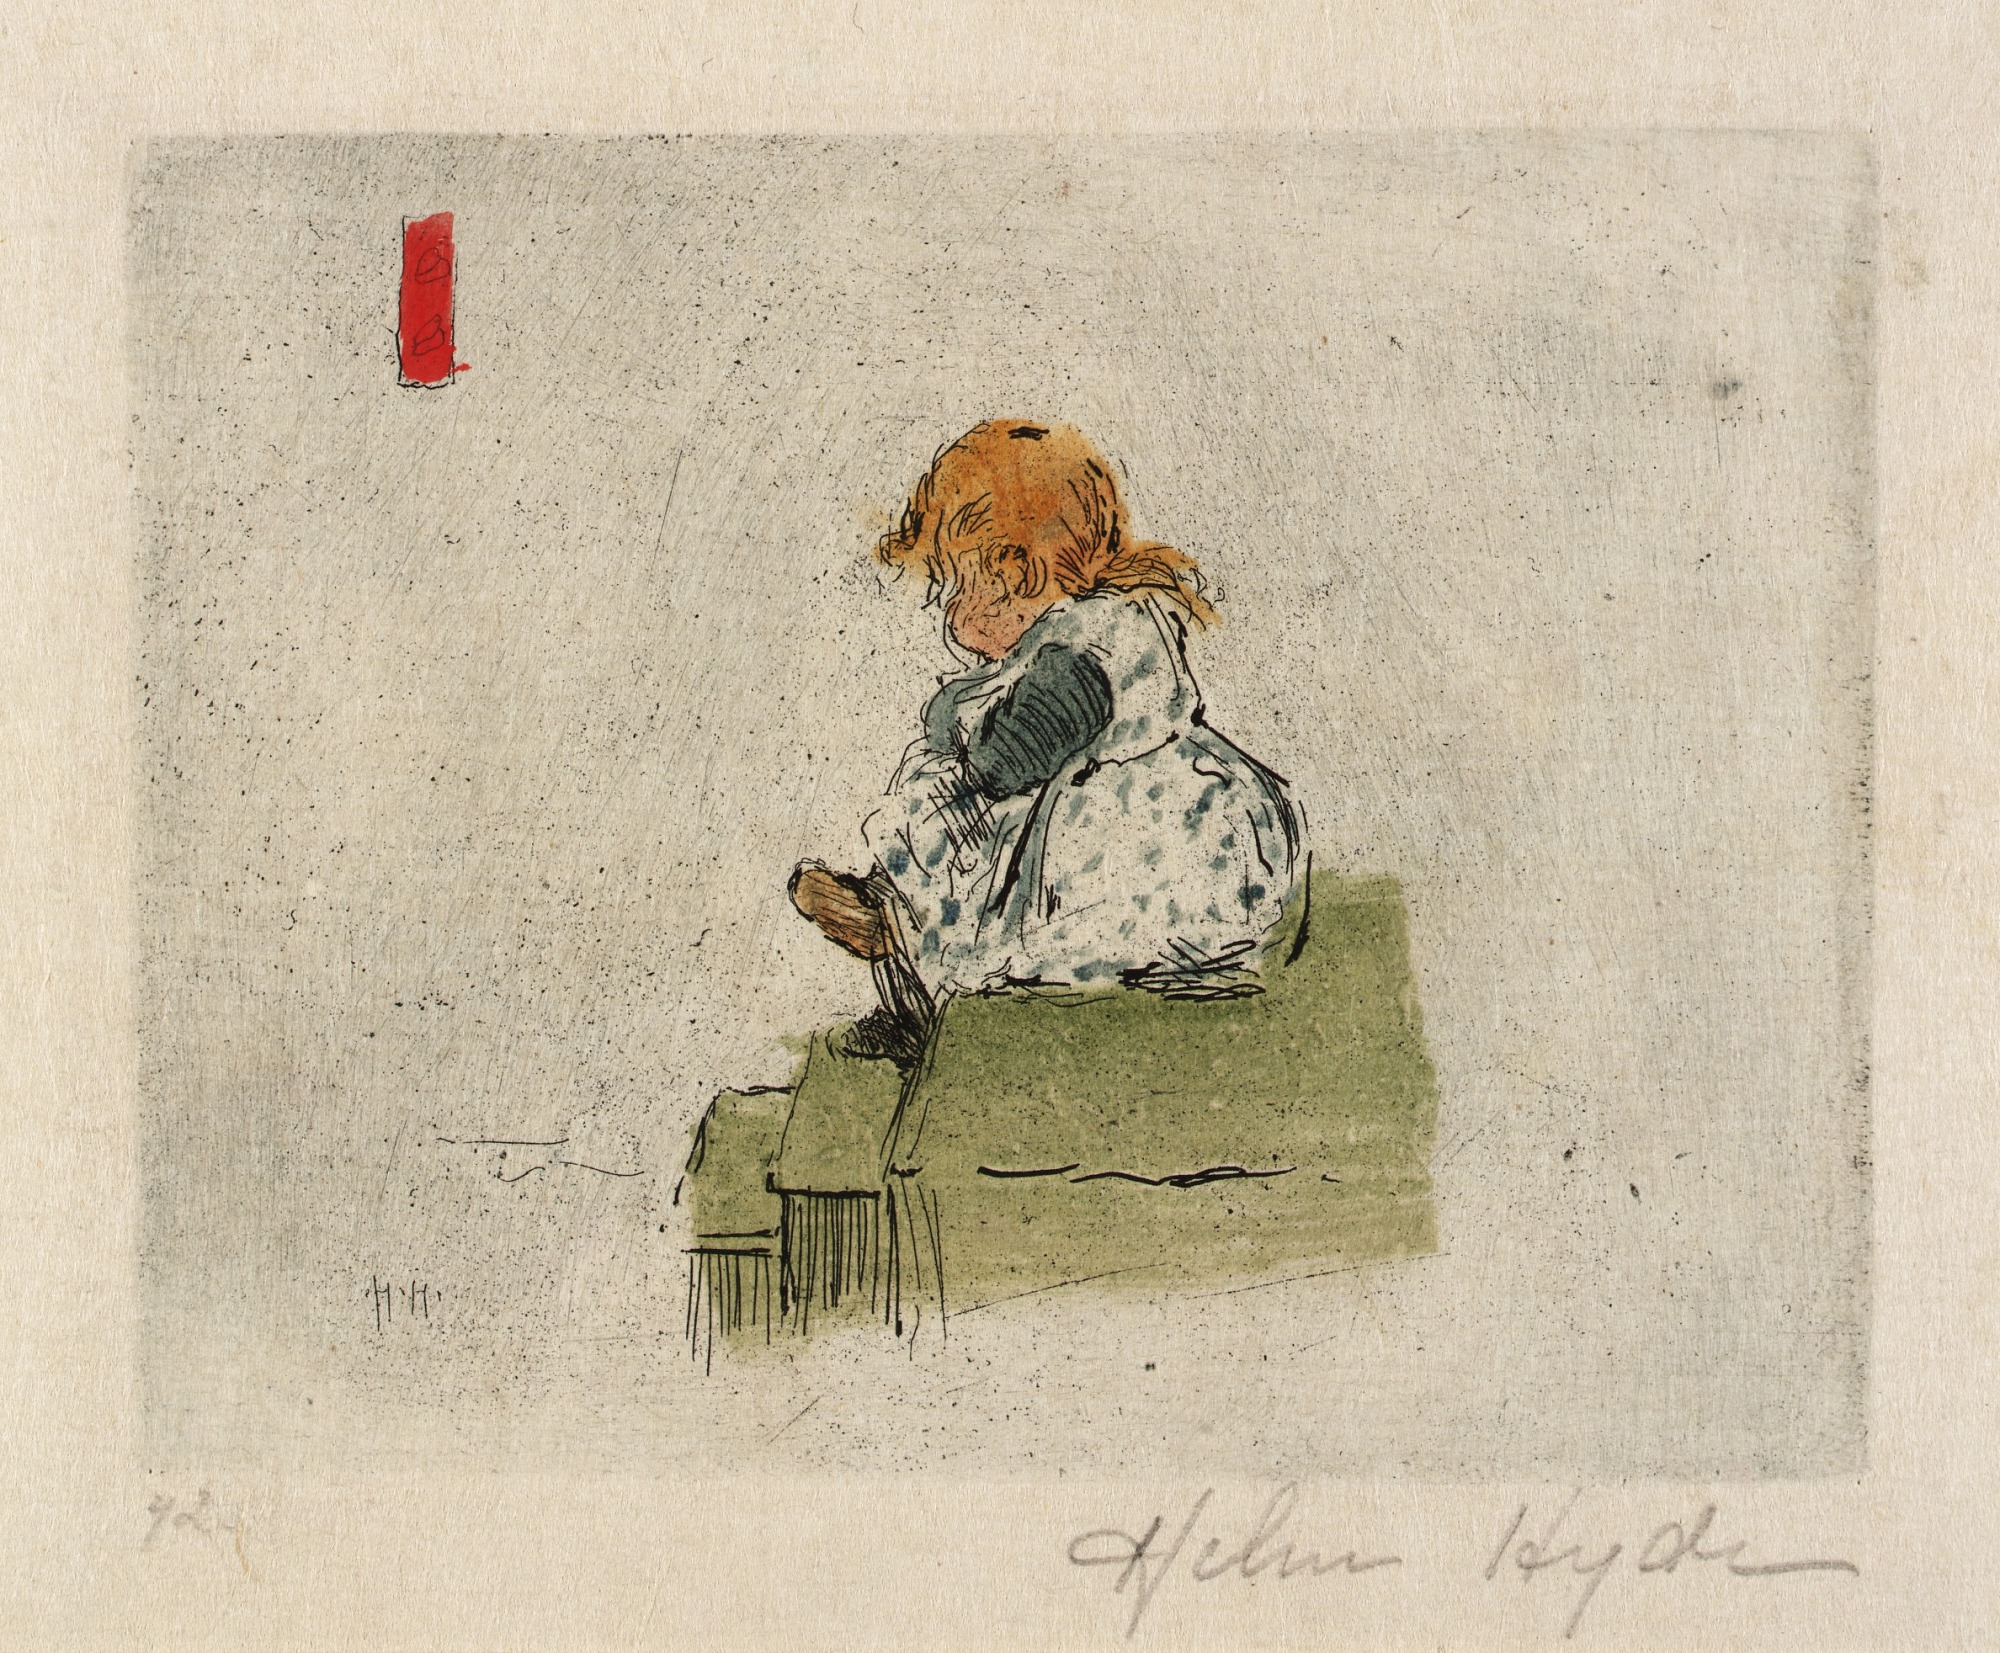 H.H.
42
Helen Hyde